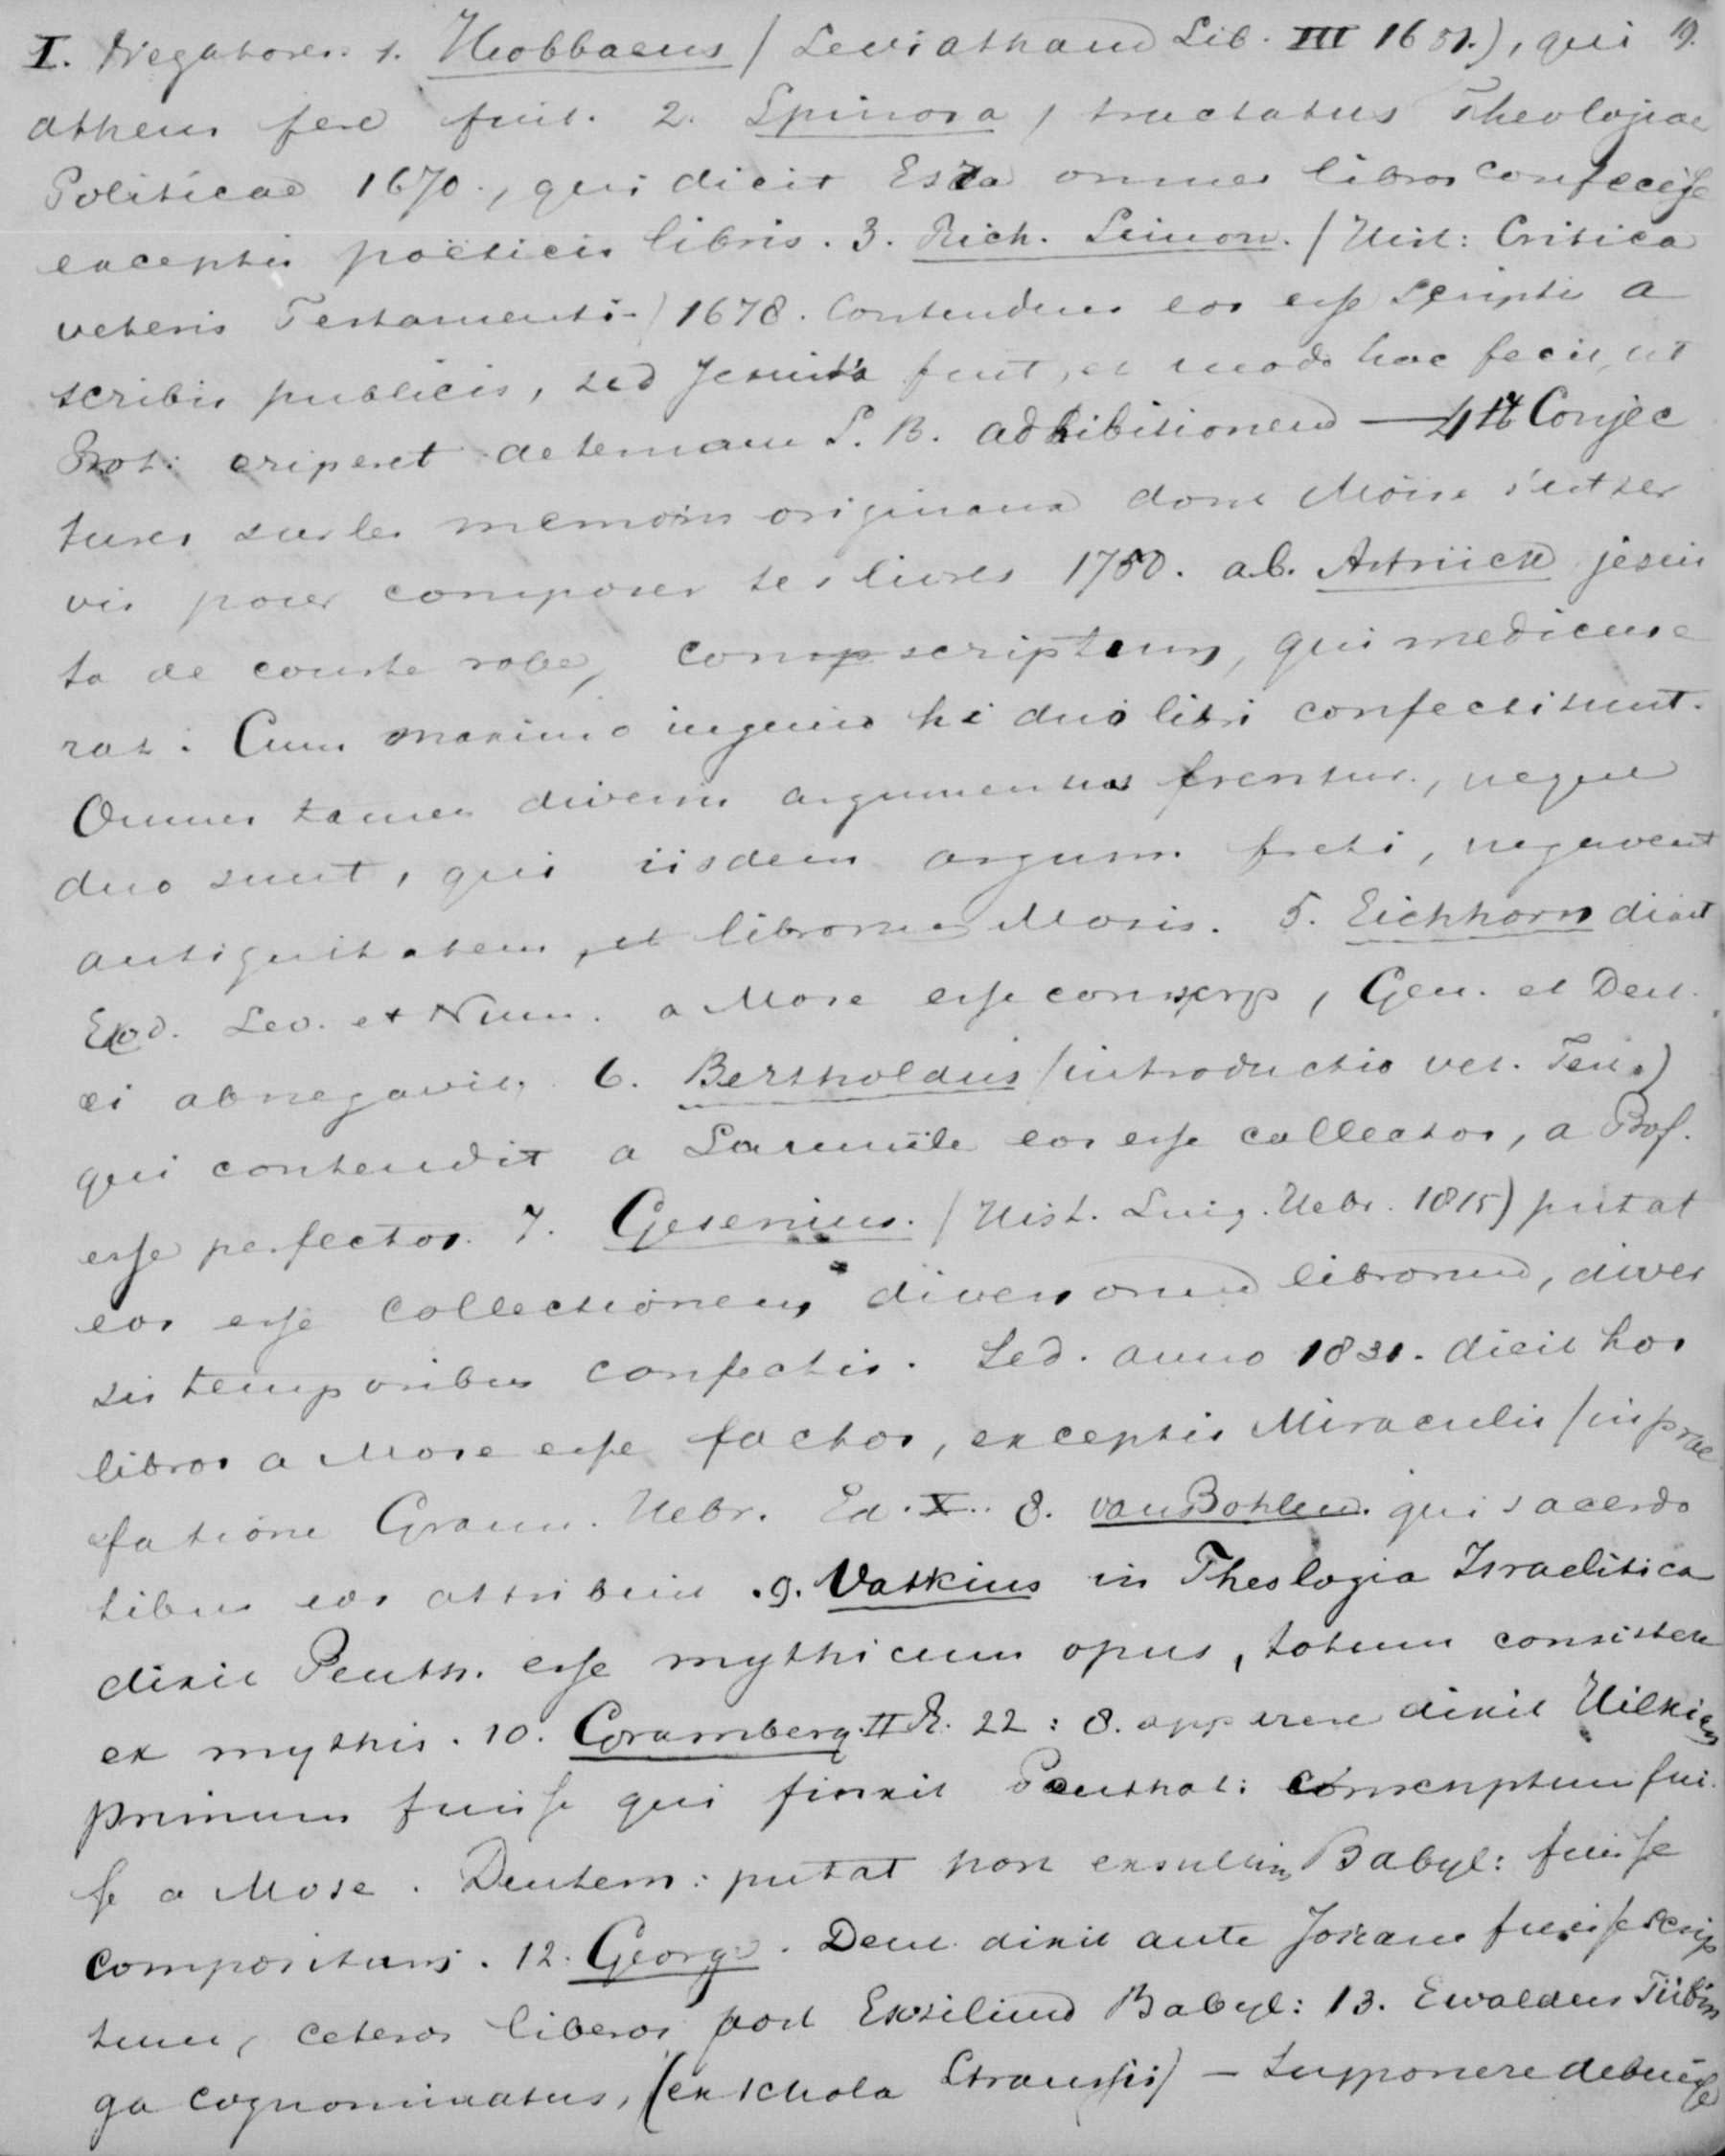 I. Negatores. 1. Hobbaeus / Leviathan Lib. III 1651.), qui 19.
atheus fere fuit. 2. Spinosa / tractatus Theologiae
Politicae 1670., qui dicit Esra omnes libros confecisse
exceptis poëticis libris. 3. Rich. Simon. / Hist: Critica
veteris Testamenti-) 1678. Contendens eos esse scriptis a
scribis publicis, sed Jesuita fuit, et modo hoc fecit, ut
Prot: eriperet aeternam S. B. adhibitionem — 4 Conjec
tures sur les memoirs originaux dont Moïse s'est ser
vis pour composer ses livres 1750. ab. Astriick jesui
ta de courte robe, conscriptum, qui medicus e
rat. Cum maximo ingenio hi duo libri confecti sunt.
Omnes tamen diversis argumentis , neque
duo sunt, qui iisdem argum. freti, negaverit
antiquitatem, et librorum Mosis. 5. Eichhorn dixit
Exod. Lev. et Num. a Mose esse conscrp, Gen. et Deut.
ei abnegavit, 6. Bertholdus / introductio vet. Test.)
qui contendit a Samuële eos esse collectos, a Prof.
esse perfectos. 7. Gesenius. / Hist. Ling. Hebr. 1815) putat
eos esse collectionem diversorum librorum, diver
sis temporibus confectis. Sed. anno 1831. dicit hos
libros a Mose esse factos, exceptis Miraculis / in prae
fatione Gramm. Hebr. Ed. X.. 8. van Bohlen. qui sacerdo
tibus eos attribuit .9. Vatkius in Theologia Israelitica
dixit Penth. esse mythicum opus, totum consistere
ex mythis. 10. Gramberg. II R. 22 : 8. apparere dixit Hilkias
primum fuisse qui finxit Penthat: conscriptum fui.
sse a Mose. Deutern: putat post exsilium Babyl: fuisse
compositum. 12. George. Deut. dixit ante Josiam fuisse scrip
tum, ceteros liberos post Exsilium Babyl: 13. Ewaldus Tübin
ga cognominatus, (ex schola Straussii) – supponere debuisse